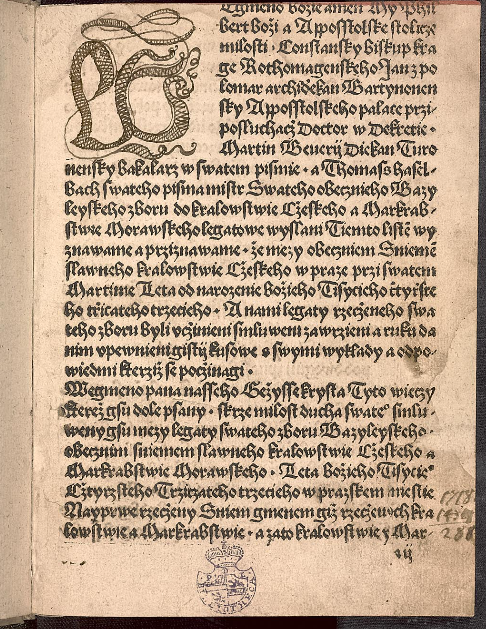 Egmeno bozie amen My Phil
bert bozi a Apposstolske stolicze
milosti · Constansky biskup kra
ge Rothomagenskeho Jan z po
lomar archidekan Bartynonen
sky Apposstolskeho palace przi
posluchacz Doctor w Dekretie ·
Martin Beuerij Diekan Turo
nensky bakalarz w swatem pismie · a Thomass hasel-
bach swateho pisma mistr Swateho obecznieho Bazy
leyskeho zboru do kralowstwie Czeskeho a Markrab-
stwie Morawskeho legatowe wyslani Tiemto listē wy
znawame a prziznawame · że mezy obeczniem Sniemē
slawneho kralowstwie Czeskeho w praze przi swatem
Martinie Leta od narozenie bozieho Tisycieho cztyrste
ho trzicateho trzecieho · A nami legaty rzeczeneho swa
teho zboru byli vczinieni smluweni zawrzieni a ruku da
nim opewnieni gistij kusowe s swymi wyklady a odpo
wiedmi kterziz se poczinagi ·
We gmeno pana nasseho Gezysse krysta Tyto wieczy
kterez gsu dole psany · skrze milost ducha swate° smlu-
weny gsu mezy legaty swateho zboru Bazyleyskeho ·
obecznim sniemem slawneho kralowstwie Czeskeho a
Markrabstwie Morawskeho · Leta bozieho Tisycie°
Cztyrzsteho Trzirzateho trzecieho w prazskem miestie
Nayprwe rzeczeny Sniem gmenem giz rzeczenych kra
lowstwie a Markrabstwie · a zato kralowstwie y Mar-